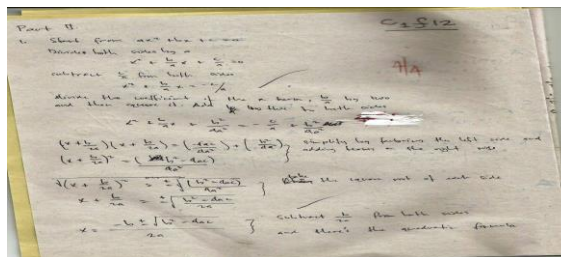 Part II
C1512
4/4
1. Start from ax² + bx + c = 0
Divide both sides by a
x² + b/a x + c/a = 0
subtract c/a from both sides
x² + b/a x = -c/a
divide the coefficient of the x term, b/a by two
and then square it. Add this to both sides
x² + b/a x + b²/4a² = -c/a + b²/4a²
(x + b/2a)(x + b/2a) = (-4ac/4a²) + (b²/4a²) } simplify by factoring the left side and
(x + b/2a)² = (b² - 4ac) adding terms on the right side.
√(x + b/2a)² = ±√(b² - 4ac)/4a² } take the square root of each side
x + b/2a = ±√b² - 4ac/2a
x = -b ± √b² - 4ac/2a } Subtract b/2a from both sides
and there's the quadratic formula